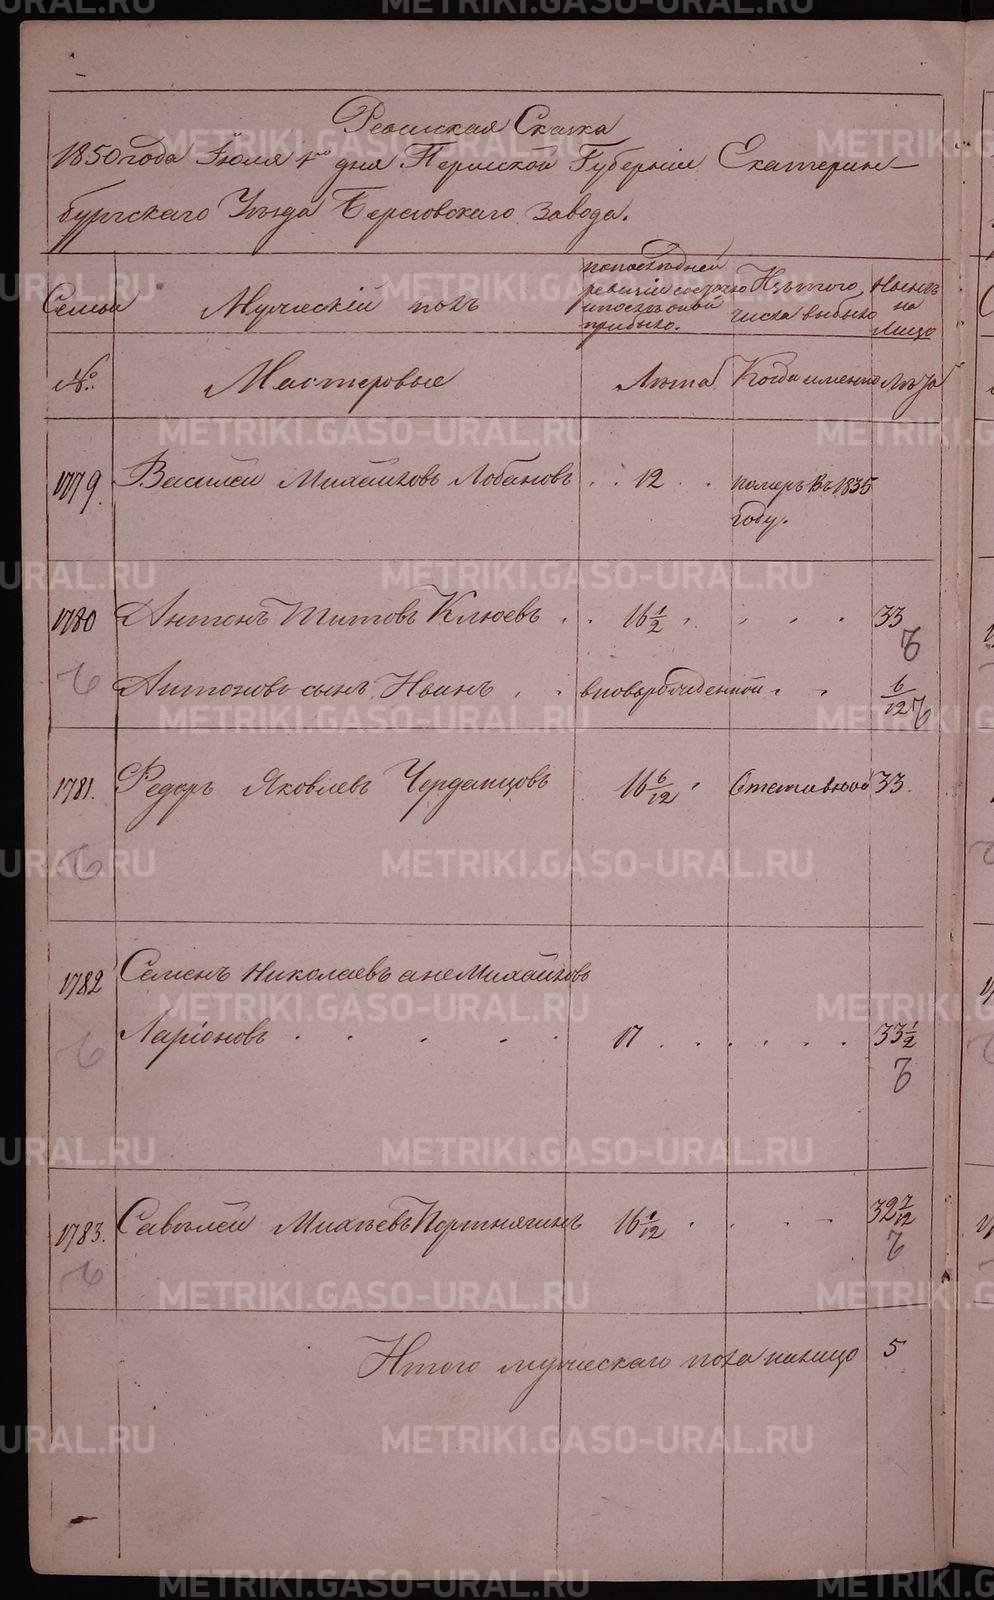 Ревизская Сказка
1850 года Июля 1го дня Пермской Губерніи Екатерин-
бургскаго Уезда Березовскаго Завода.
Семьи
Мужескій полъ
по последней ревизіи состояло и после оной прибыло.
Изъ того числа выбыло
Ныне на лицо
№.
Мастеровые
Лета
Когда именно
Лета
1779.
Василей Михайловъ Лобановъ . . 12 . .
померъ въ 1835 году.
1780
Антонъ Титовъ Клюевъ . . 16 1/2 . . . . 33
Антоновъ сынъ Иванъ . . вновьрожденной . . 6/12
1781.
Федоръ Яковлевъ Черданцовъ 16 6/12 . Отставной 33.
1782
Семенъ Николаевъ а не Михайловъ
Ларіоновъ . . . . . 17 . . . . . . 33 1/2
1783.
Савелей Михеевъ Портнягинъ 16 1/12 . . . . 32 7/12
Итого мужескаго пола налицо 5
METRIKI.GASO-URAL.RU